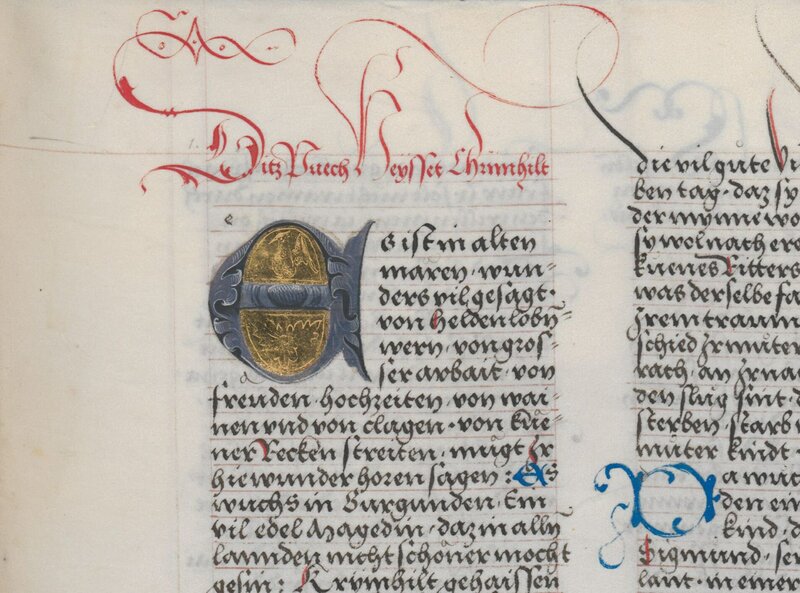 Ditz Puech Heysset Chrimhilt
Es ist in alten
maren · wun=
ders vil gesagt·
von Helden lobn=
wern · von gros=
ser arbait · von
freuden · hochzeiten · von wai=
nen und von clagen · von kue=
ner Recken streiten · mugt Ir
hie wunder horen sagen : Es
wuchs in Burgunden · Ein
vil edel Magedin · daz in allñ
lannden nicht schoner mocht
gesin : Krimhilt gehaissen
die vil gute
ben tag · daz sy
der mynne wo
sy wol nach ere
kuenes Ritters
was derselbe fa
Irem traum
schied Ir muter
rach · an Ir na
den slug sint · d
sterben · starb
muter kindt
Da wuc
den ein
kind · d
Sigmund · sei
lant · in einer